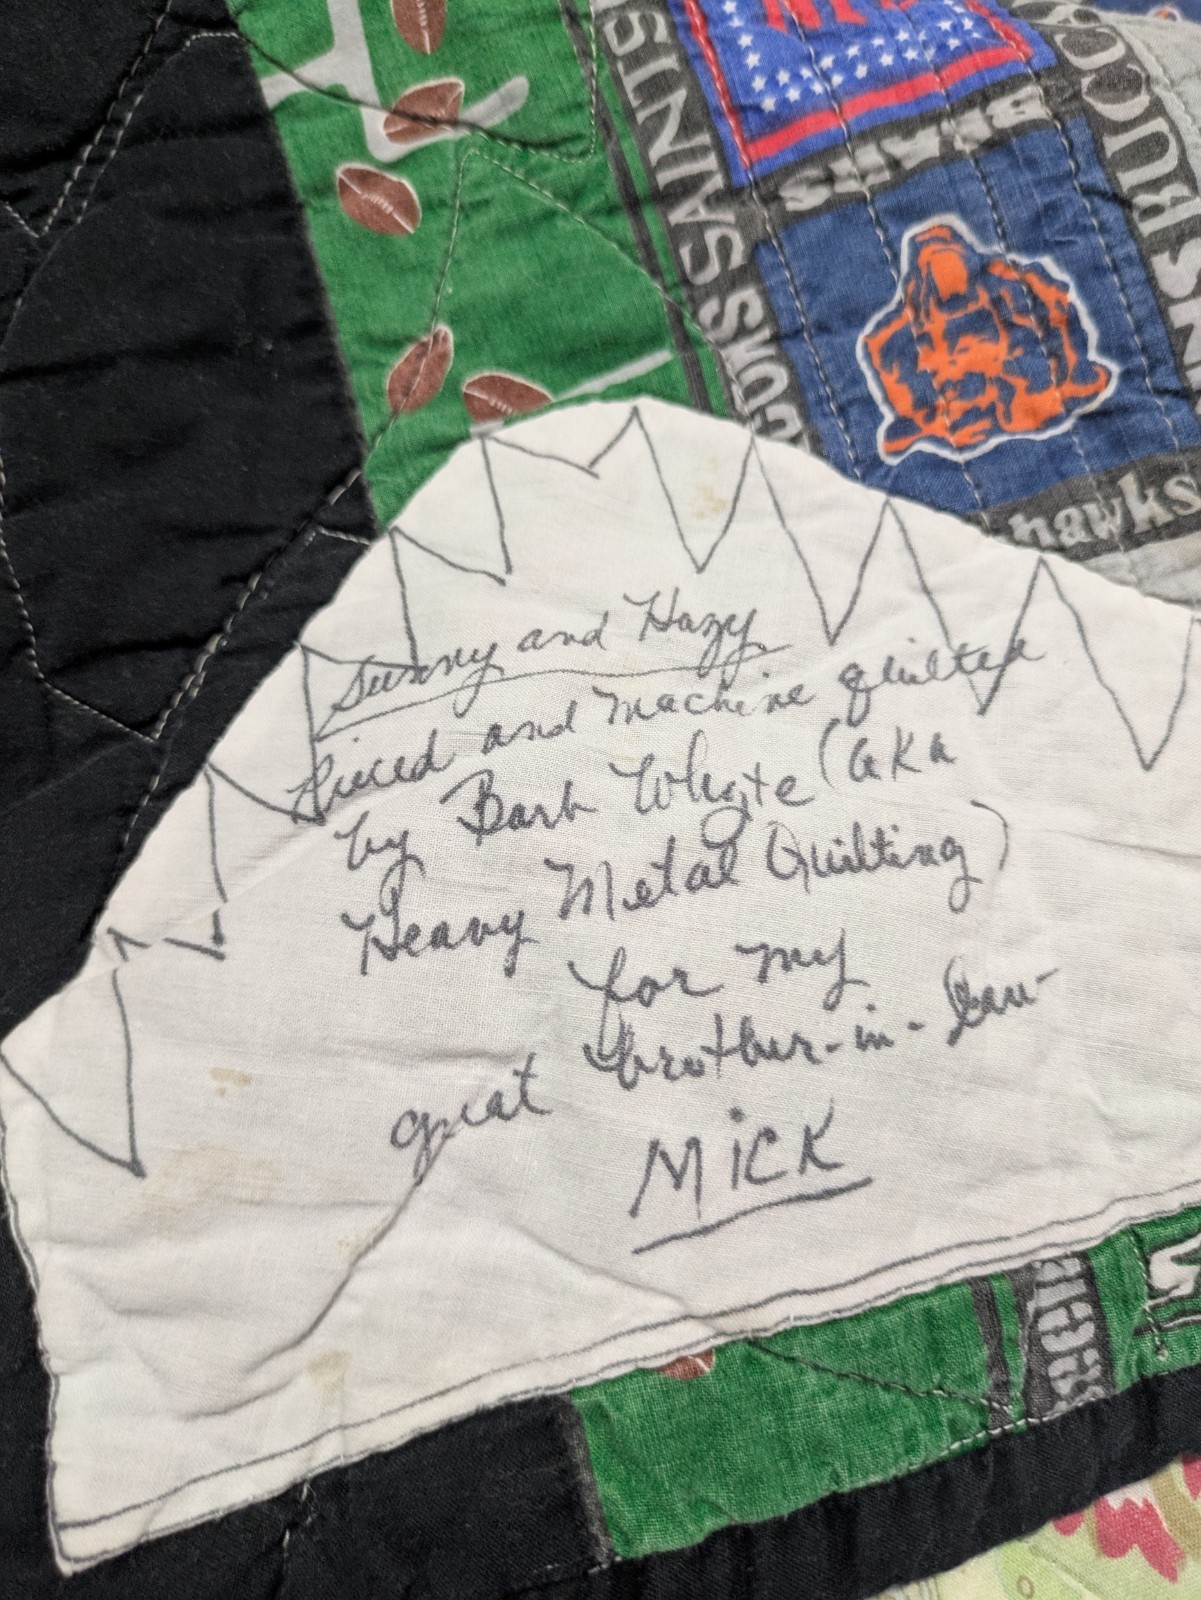 SAINTS
NFL
BEARS
BUCC
hawks
Sunny and Hazy
Pieced and machine quilted
by Barb Whyte (aKa
Heavy Metal Quilting)
for my
great brother-in-law-
MicK